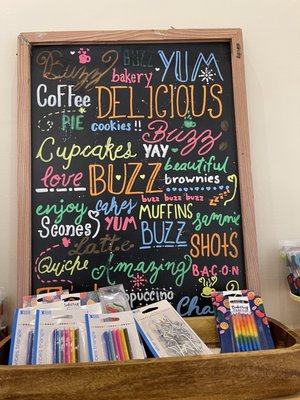 Buzz BUZZ YUM
bakery
Coffee DELICIOUS
PIE cookies!! Buzz
Cupcakes YAY beautiful
love BUZZ brownies
buzz buzz buzz
enjoy cakes MUFFINS sammie
Scones YUM BUZZ SHOTS
latte
Quiche Amazing BACON
ppuccino
Cha